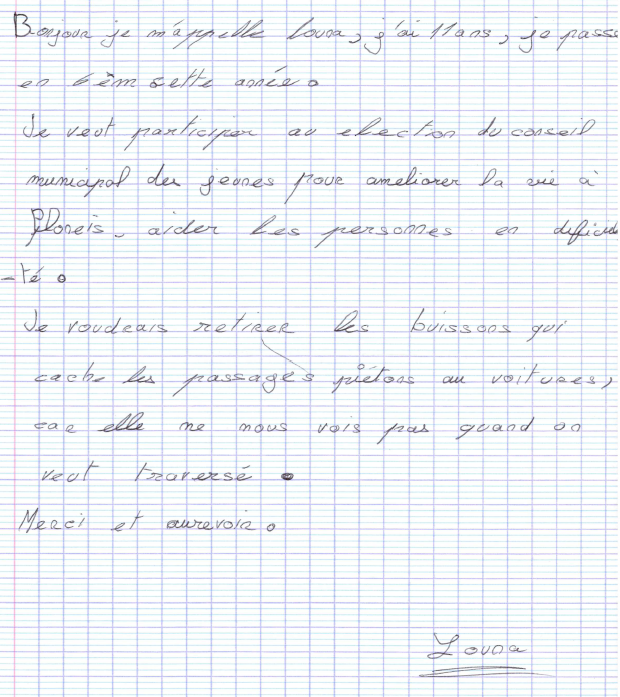 Bonjour je m'appelle Louna, j'ai 11ans, je passe
en 6èm sette année.
Je veut participer au election du conseil
municipal des jeunes pour ameliorer la vie à
Plonéis, aider les personnes en difficul
-té.
Je voudrais retirer les buissons qui
cache les passages piétons au voitures,
car elle ne nous vois pas quand on
veut traversé.
Merci et aurevoir.
Louna